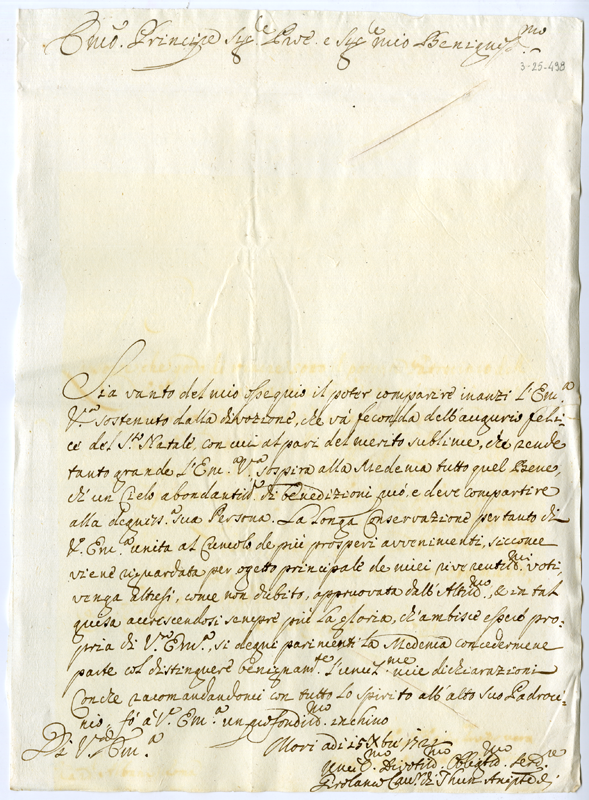 Emo. Principe Sig.re Pre. e Sig.re mio Benigniss.mo
3-25-498
Sia vanto del mio ossequio il poter comparire inanzi l'Em.a
V.a sostenuto dalla divozione, che và feconda dell'augurio feli=
ce del S.to Natale, con cui al pari del merito sublime, che rende
tanto grande l'Em. V.a sospira alla Medema tutto quel Bene,
ch'un Cielo abondantiss.o di benedizioni può, e deve compartire
alla degniss.a sua Persona. La longa Conservazione pertanto di
V. Em.a unita al Cumolo de più prosperi avvenimenti, siccome
viene riguardata per ogetto principale de miei riverentiss.mi voti,
venga altresì, come non dubito, approvata dall'Altiss.mo, & in tal
guisa accrescendosi sempre più la gloria, ch'ambisce esser pro=
pria di V.a Em.a, si degni parimenti la Medema concedermene
parte col distinguere benignam.te l'umil.me mie dichiarazioni
Con che racomandandomi con tutto lo spirito all'alto suo Padroci=
nio, fò a V.a Em.a un profondiss.mo inchino
Di V.a Em.a
Mori adi 15 Xbre
Umil.mo Divotiss.mo Obligatiss.mo Ser.re
Girolamo di Thun